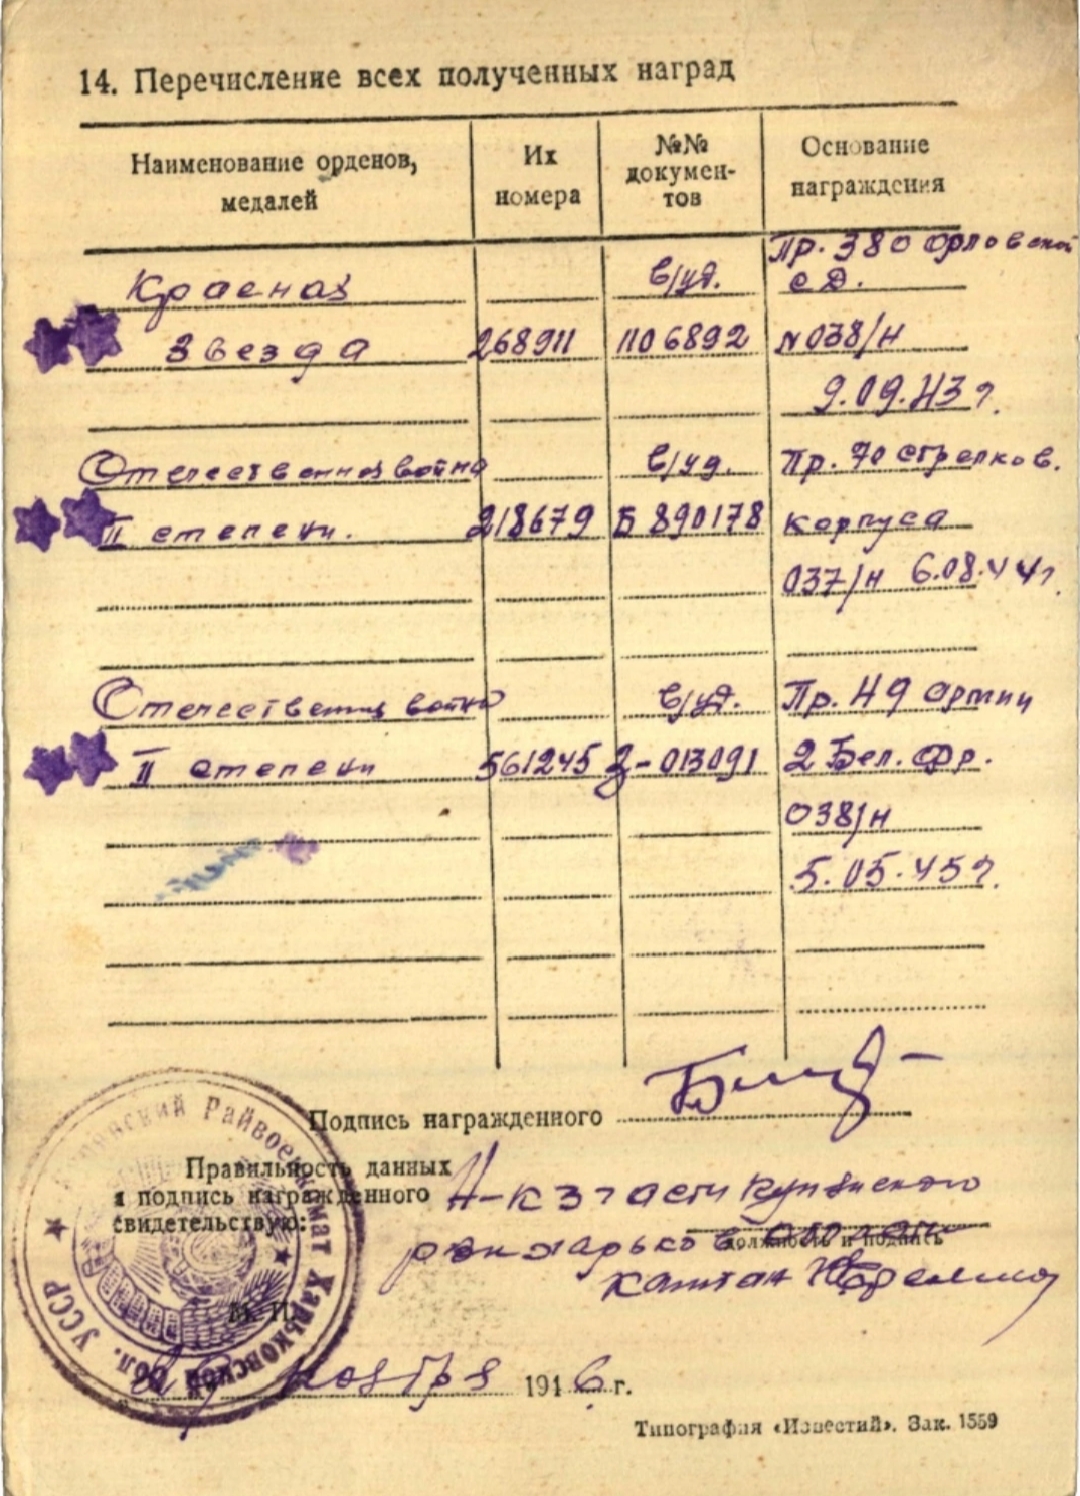 14. Перечисление всех полученных наград
Наименование орденов, медалей
Их номера
№№ докумен-тов
Основание награждения
Пр. 380 Орловской
Красная в/уд. с д.
Звезда 268911 По 6892 № 038/н
9.09.43 г.
Отечественная война в/уд. Пр. 70 стрелков.
II степени. 218679 Б 890178 корпуса
037/н 6.08.44 г.
Отечественная война в/уд. Пр. 49 армии
II степени 561245 З-013091 2 Бел. Фр.
038/н
5.05.45 г.
Подпись награжденного
Правильность данных
и подпись награжденного
свидетельствую:
Н-к 3 части Купянского
должность и подпись
капитан
М. П.
Райвоенкомат Харьковской обл. УССР
ноября 1946 г.
Типография «Известий». Зак. 1559